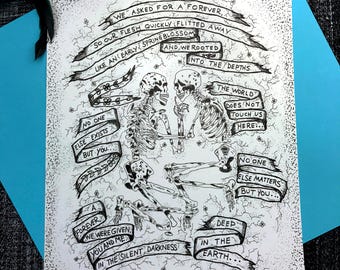 WE ASKED FOR A FOREVER...
SO OUR FLESH QUICKLY FLITTED AWAY
LIKE AN EARLY SPRING BLOSSOM
AND WE ROOTED
INTO THE DEPTHS
THE WORLD
DOES NOT
TOUCH US
HERE...
NO ONE
ELSE EXISTS
BUT YOU...
NO ONE
ELSE MATTERS
BUT YOU...
A
FOREVER
WE WERE GIVEN,
YOU AND ME
IN THE SILENT DARKNESS
DEEP
IN THE
EARTH...